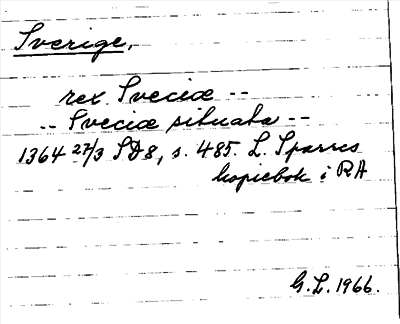 Sverige,
rex Sveciæ --
-- Sveciæ situata --
1364 27/3 SD8, s. 485. L. Sparres
kopiebok i RA
G.L. 1966.